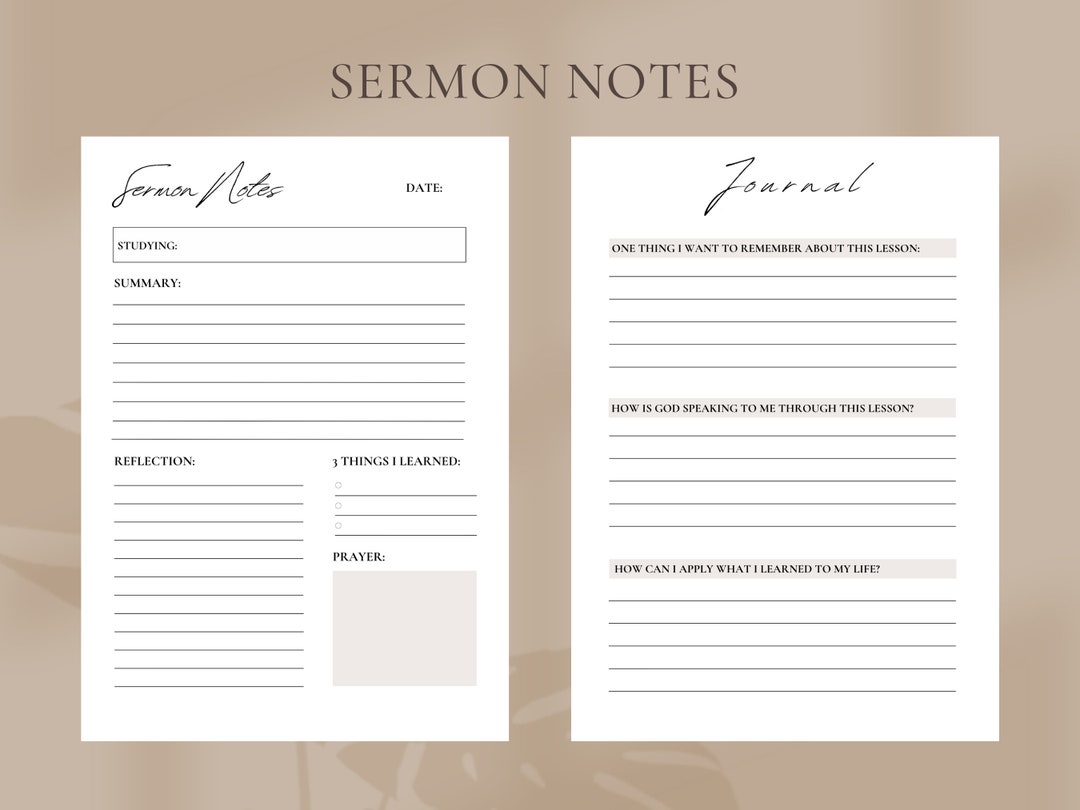 SERMON NOTES
Sermon Notes
DATE:
STUDYING:
SUMMARY:
REFLECTION:
3 THINGS I LEARNED:
PRAYER:
Journal
ONE THING I WANT TO REMEMBER ABOUT THIS LESSON:
HOW IS GOD SPEAKING TO ME THROUGH THIS LESSON?
HOW CAN I APPLY WHAT I LEARNED TO MY LIFE?